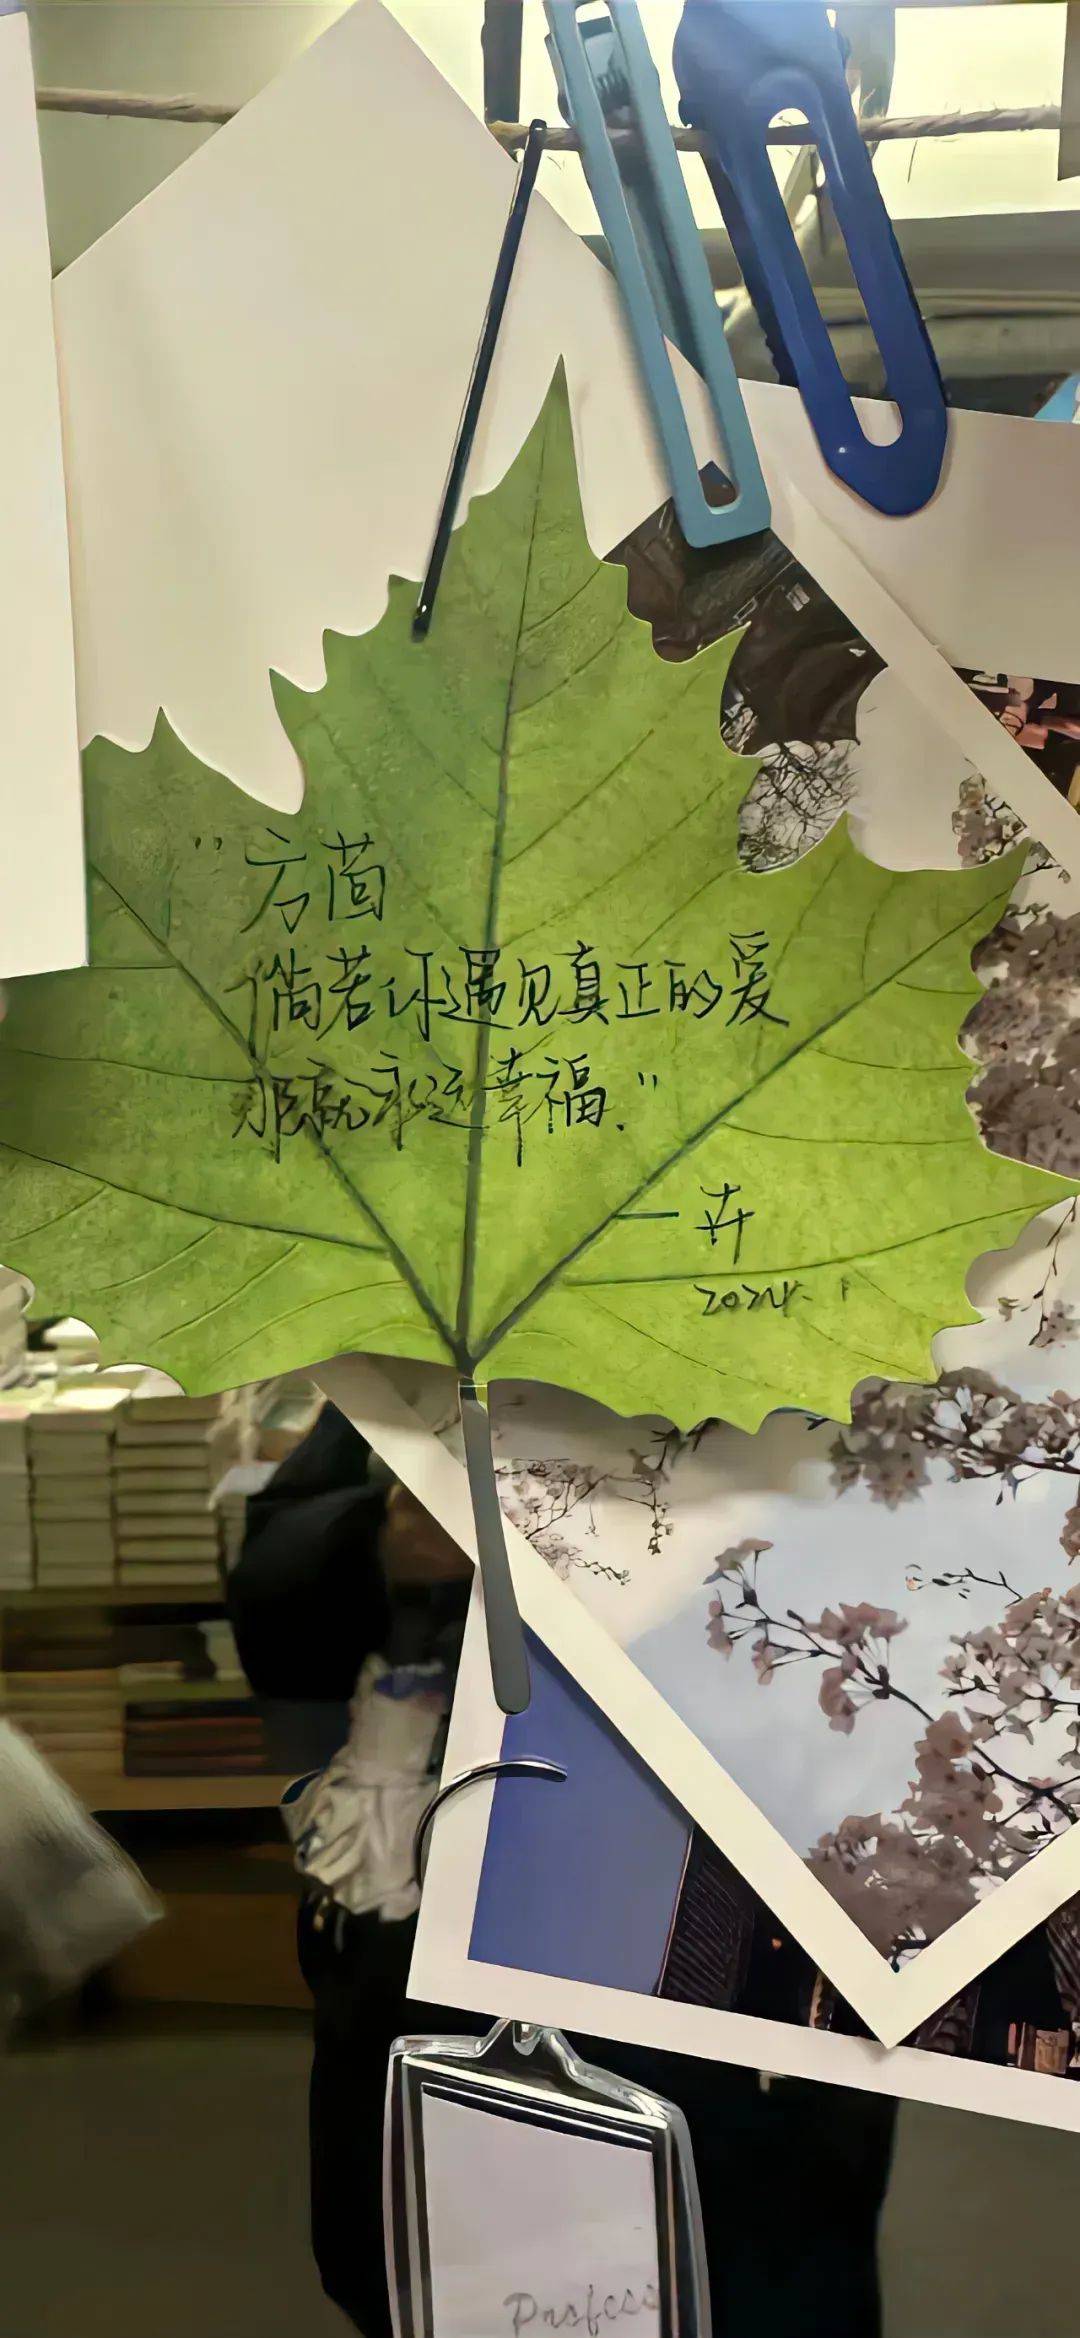 “方茴
倘若你遇见真正的爱
那就永远幸福.”
—卉
2024.1
Profess